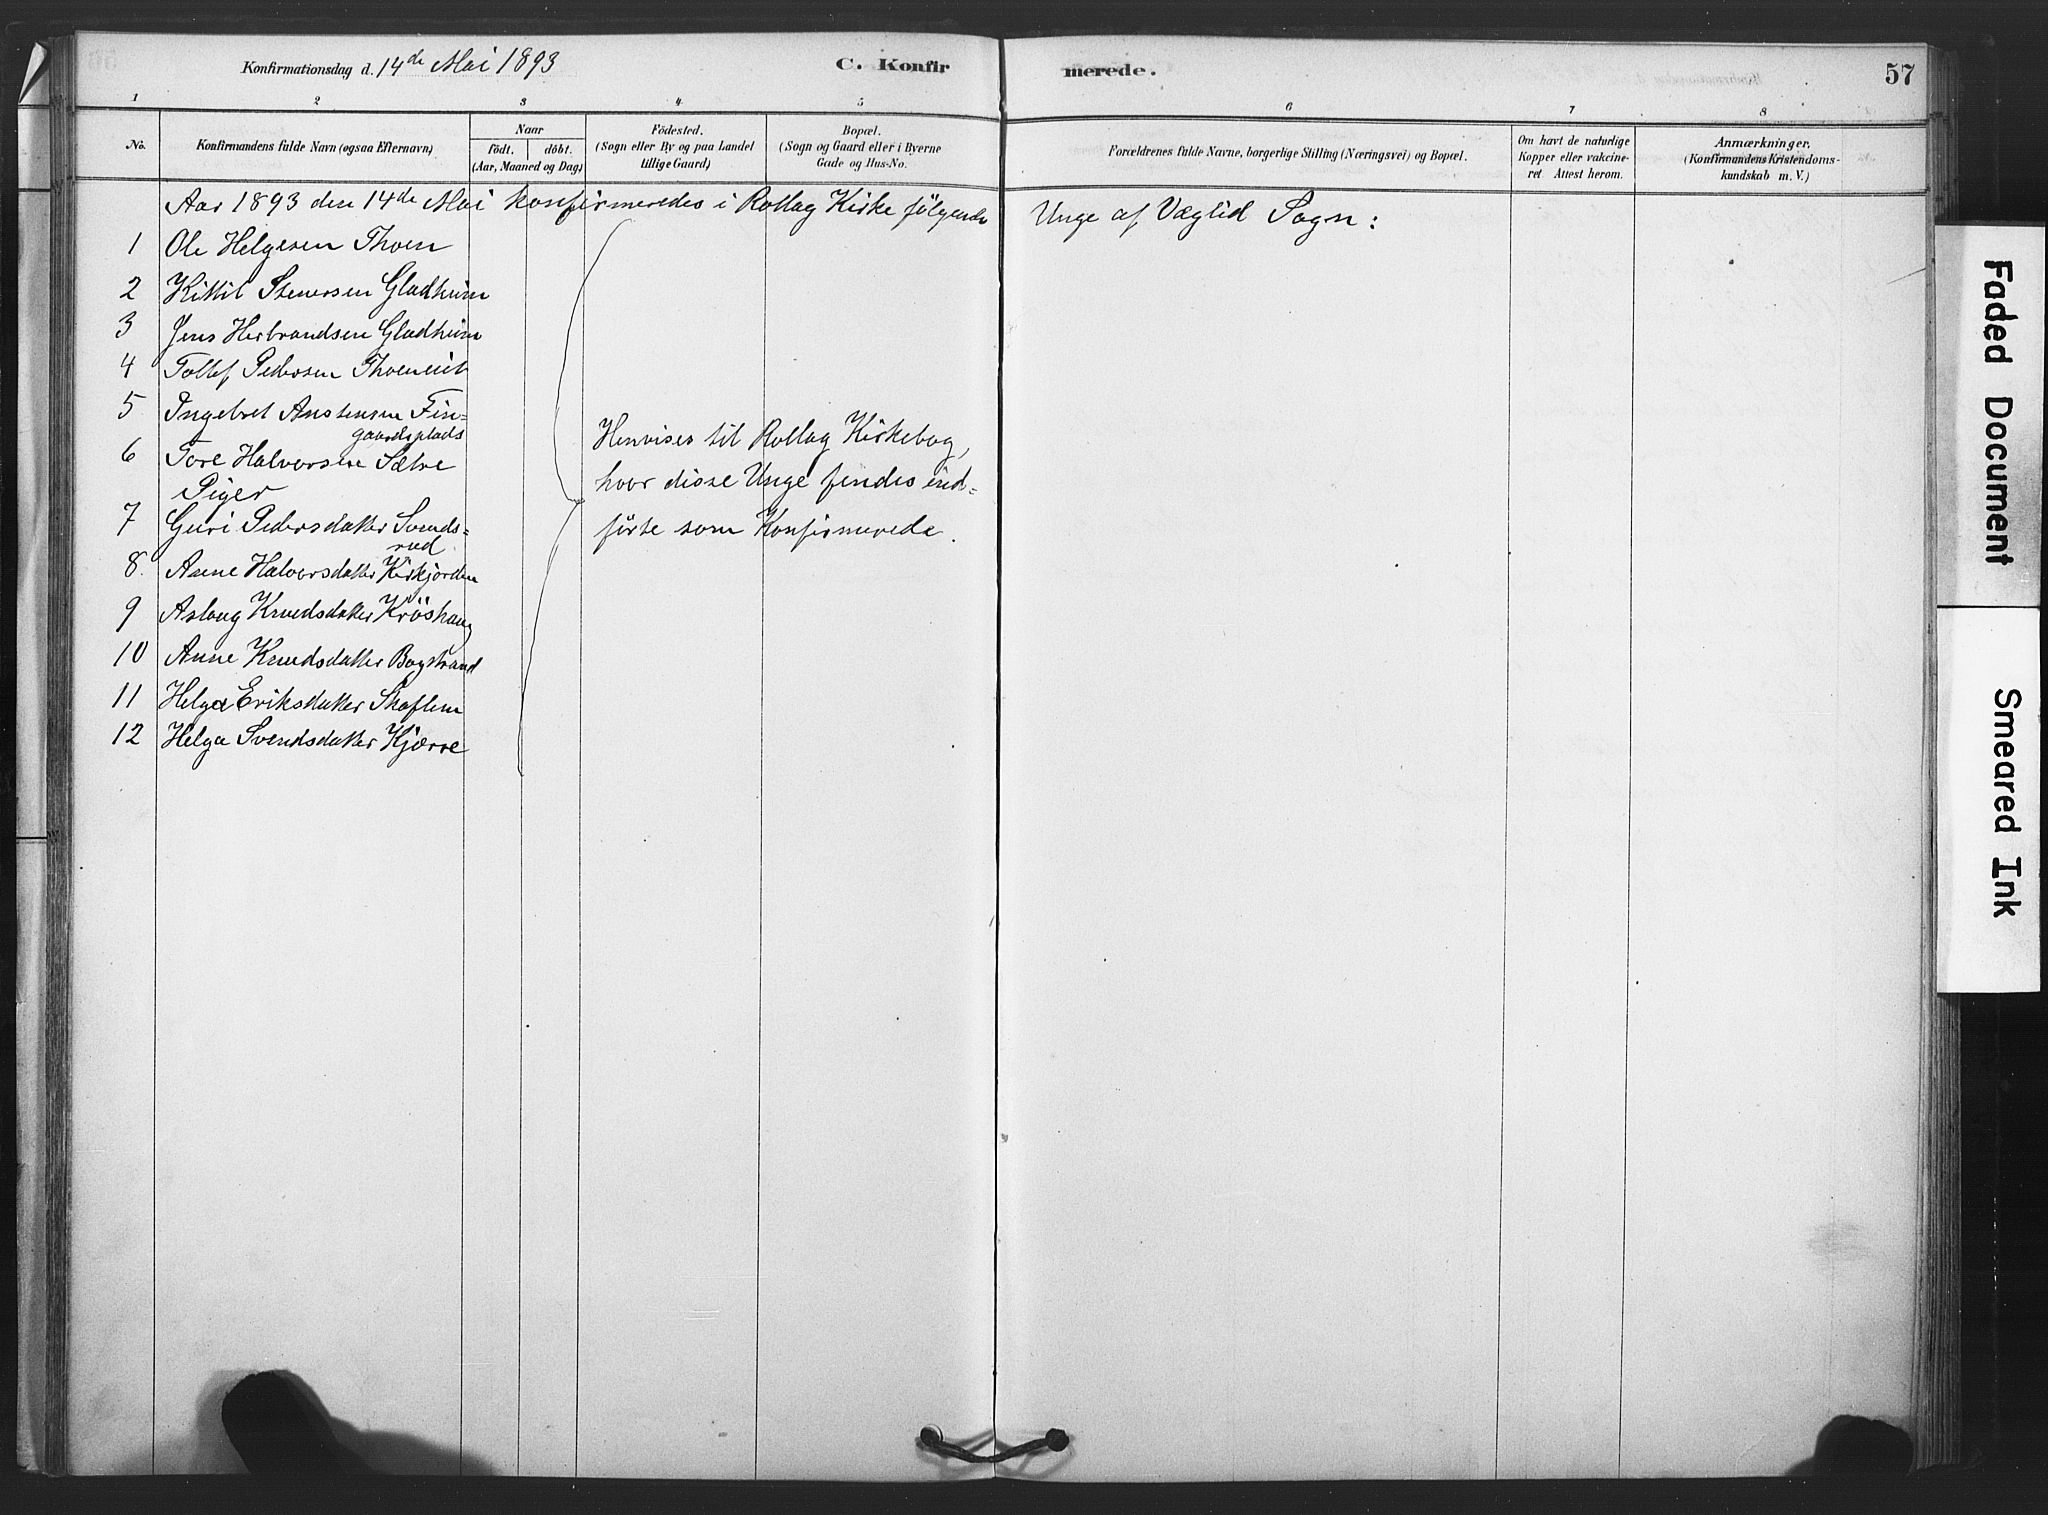 Konfirmationsdag d. 14de Mai 1893
C. Konfir
merede.
57
1
2
3
4
5
6
7
8
No.
Konfirmandens fulde Navn (ogsaa Efternavn)
Naar
födt. döbt.
(Aar, Maaned og Dag)
Födested.
(Sogn eller By og paa Landet
tillige Gaard)
Bopæl.
(Sogn og Gaard eller i Byerne
Gade og Hus-No.
Forældrenes fulde Navne, borgerlige Stilling (Næringsvei) og Bopæl.
Om havt de naturlige
Kopper eller vakcine-
ret Attest herom.
Anmærkninger.
(Konfirmandens Kristendoms-
kundskab m. V.)
Aar 1893 den 14de Mai konfirmeredes i Rollag Kirke følgende
Unge af Væglid Sogn:
1 Ole Helgesen Thoen
2 Kittil Stenersen Gladheim
3 Jens Herbrandsen Gladheim
4 Tollef Pedersen Thoeneiet
5 Ingebret Anstensen Fin-
gaardsplads
6 Tore Halvorsen Sætre
Piger
7 Guri Pedersdatter Svends-
rud
8. Anne Halvorsdatter Kirkjorden
9 Aslaug Knudsdatter Kröshaug
10 Anne Knudsdatter Bogstrand
11 Helga Eriksdatter Skaflem
12 Helga Svendsdatter Kjærre
Henvises til Rollag Kirkebog,
hvor disse Unge findes ind-
førte som Konfirmerede.
Faded Document
Smeared Ink